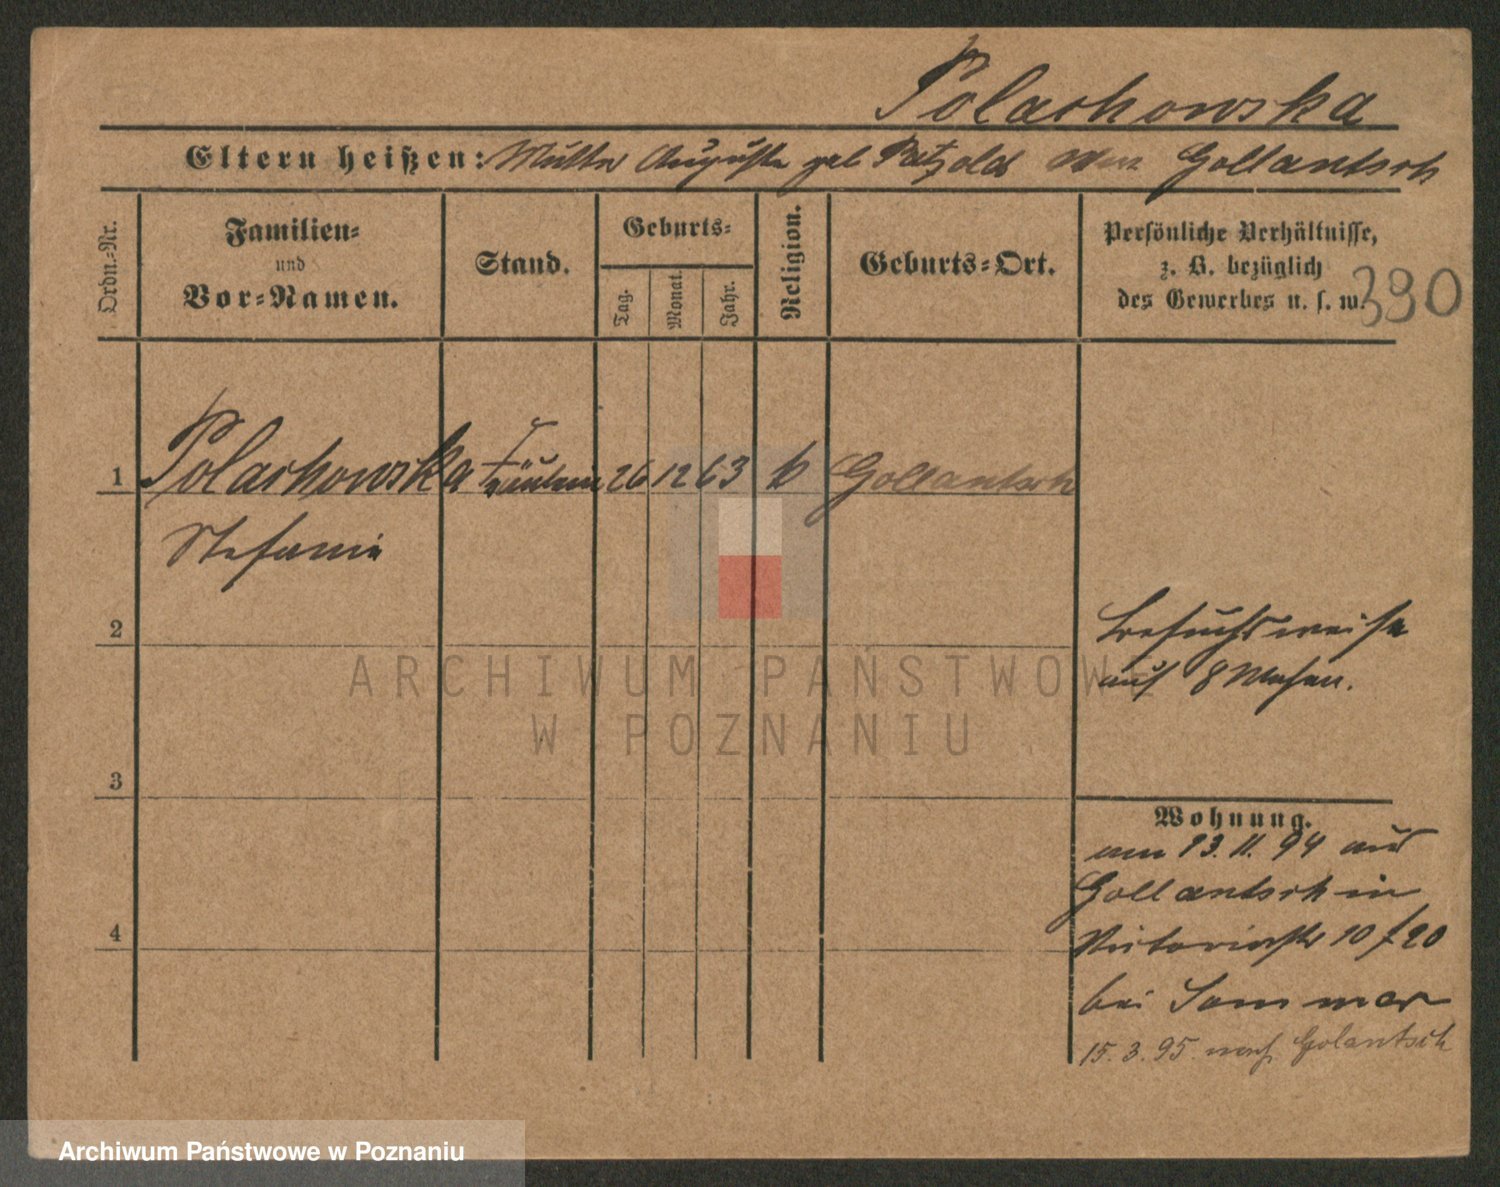 Polachowska
Eltern heißen: Mutter Auguste geb Patzold Gollantsch
Ordn.-Nr.
Familien-
und
Vor-Namen.
Stand.
Geburts-
Tag.
Monat.
Jahr.
Religion.
Geburts-Ort.
Persönliche Verhältnisse,
z. B. bezüglich
des Gewerbes u. s. w.
390
1 Polachowska Fräulein 26 12 63 k Gollantsch
Stefanie
2
Besuchsweise
auf 8 Wochen.
3
Wohnung.
am 13. 11. 94 aus
Gollantsch in
Victoriastr 10 f 20
bei Sommer
15. 3. 95. nach Golantsch
4
ARCHIWUM PAŃSTWOWE
W POZNANIU
Archiwum Państwowe w Poznaniu